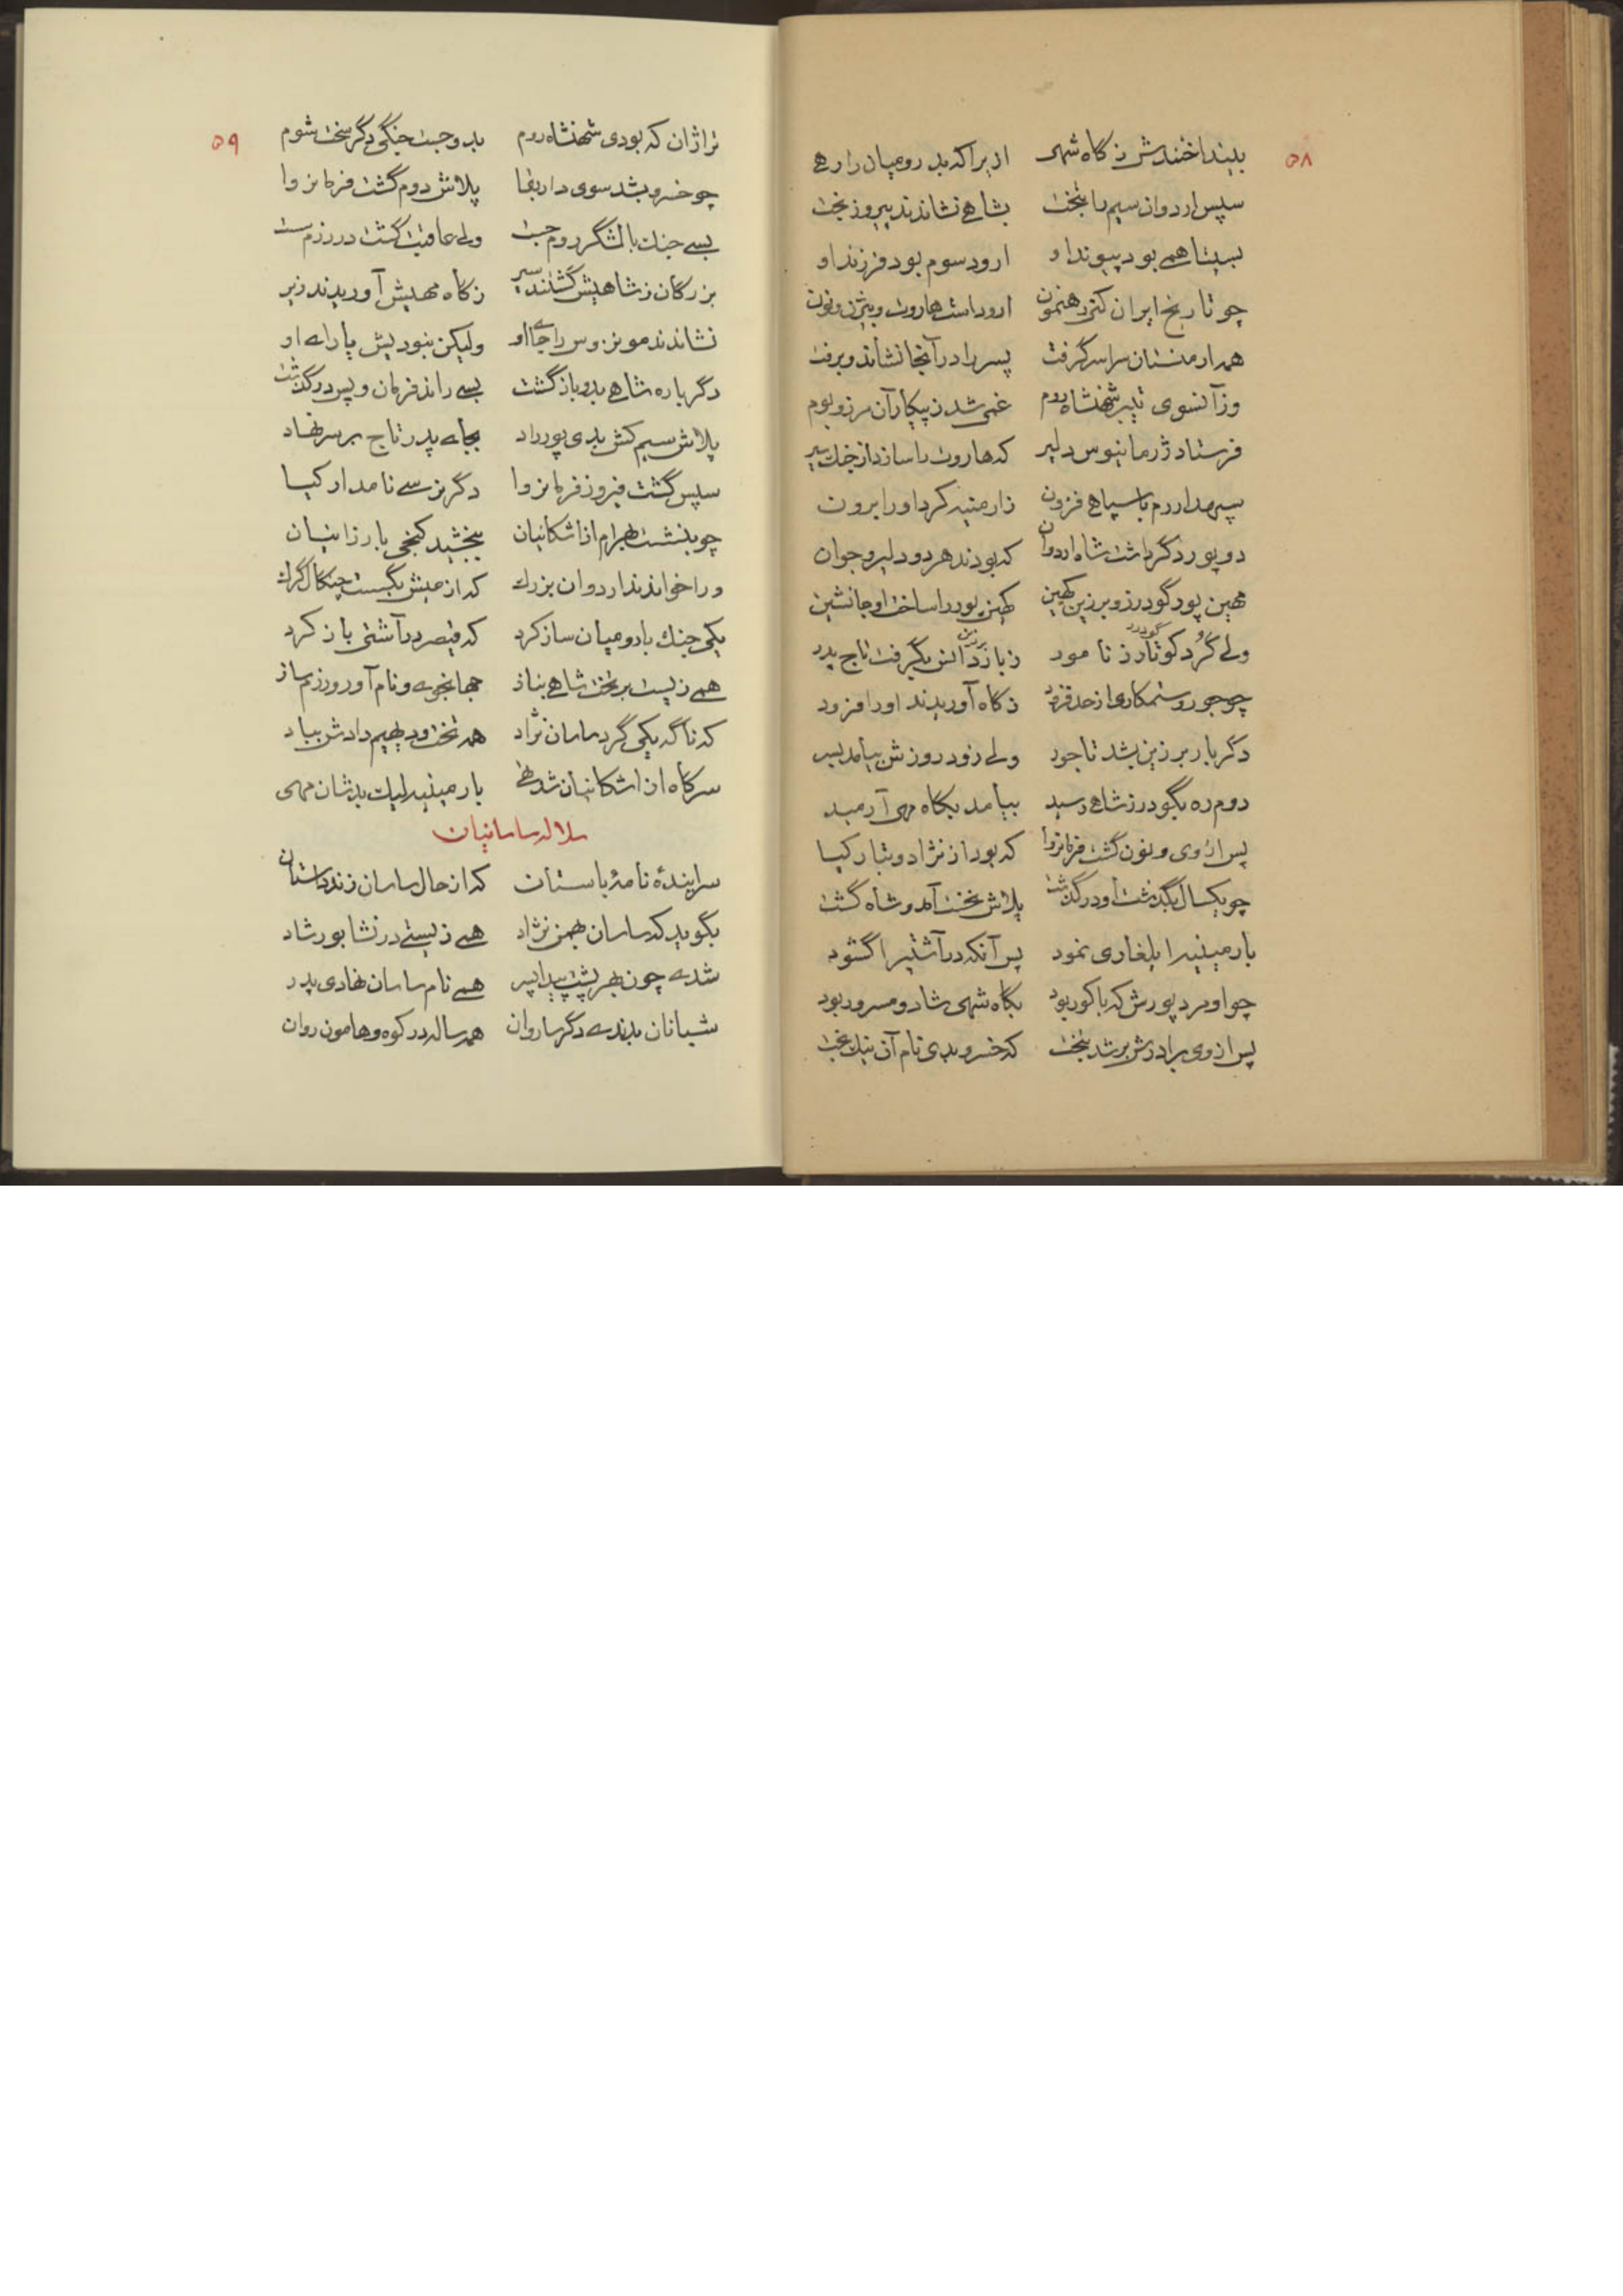 ۵۸
بینداختندش ز گاه شهی ازیرا که بد رومیان را رهی
سپس اردوان سیم را بتخت بشاهی نشاندند پیروز بخت
بسیتا همی بود پیوند او ارود سوم بود فرزند او
چو تاریخ ایران کنی رهنمون ارود است هاروت و بیژن ونون
همه ارمنستان سراسر گرفت پسر را در آنجا نشاند و برفت
وز آنسوی تیبر شهنشاه روم غمی شد ز پیکار آن مرز و بوم
فرستاد ژرمانیوس دلیر که هاروت را سازد از جنگ سیر
سپهدار روم با سپاهی فزون ز ارمنیه کرد او را برون
دو پور دگر داشت شاه اردوان که بودند هر دو دلیر و جوان
مهین پور گودرز و برزین کهین کهین پور را ساخت او جانشین
ولی گرد کوتارز نامور گودرز ز بازدانس بگرفت تاج پدر برزین
چو جور و ستمکاری از حد فزود ز گاه آوریدند او را فرود
دگر بار برزین بشد تاجور ولی زود روزش بیامد بسر
دوم ره بگودرز شاهی رسید بیامد بگاه مهی آرمید
پس از وی ونون گشت فرمانروا که بود از نژاد و تبار کیا
چو یکسال بگذشت او درگذشت پلاش بتخت آمد و شاه گشت
بارمینیه را یلغاری نمود پس آنکه در آشتی را گشود
چو او مرد پورش که پاکور بود بگاه شهی شاد و مسرور بود
پس از وی برادرش بر شد بتخت که خسرو بدی نام آن نیک بخت
۵۹
تراژان که بودی شهنشاه روم بدو جست جنگی دگر سخت شوم
چو خسرو بشد سوی دار بقا پلاش دوم گشت فرمانروا
بسی جنگ با لشگر روم جست ولی عاقبت گشت در رزم سست
بزرگان ز شاهیش گشتند سیر ز گاه مهیش آوریدند زیر
نشاندند مونزوس را جای او ولیکن نبودیش یارای او
دگر باره شاهی بدو باز گشت بسی راند فرمان و پس درگذشت
پلاش سیم کش بدی پور راد بجای پدر تاج بر سر نهاد
سپس گشت فیروز فرمانروا دگر نرسی نامدار کیا
چو بنشست بهرام از اشکانیان ببخشید گنجی بارزانیان
ورا خواندند اردوان بزرگ که از میش بگسست چنگال گرگ
یکی جنگ با رومیان ساز کرد که قیصر در آشتی باز کرد
همی زیست بر تخت شاهی بناز جهانجوی و نام آور و رزم ساز
که ناگه یکی گرد ساسان نژاد همه تخت و دیهیم دادش بباد
سر گاه از اشکانیان شد تهی بارمینیه لیک بدشان مهی
سلاله ساسانیان
سراینده نامهٔ باستان که از حال ساسان زند داستان
بگوید که ساسان بهمن نژاد همی زیستی در نشابور شاد
شدی چون بهر پشت پیدا پسر همی نام ساسان نهادی پدر
شبانان بدندی دگر ساروان همه ساله در کوه و هامون روان